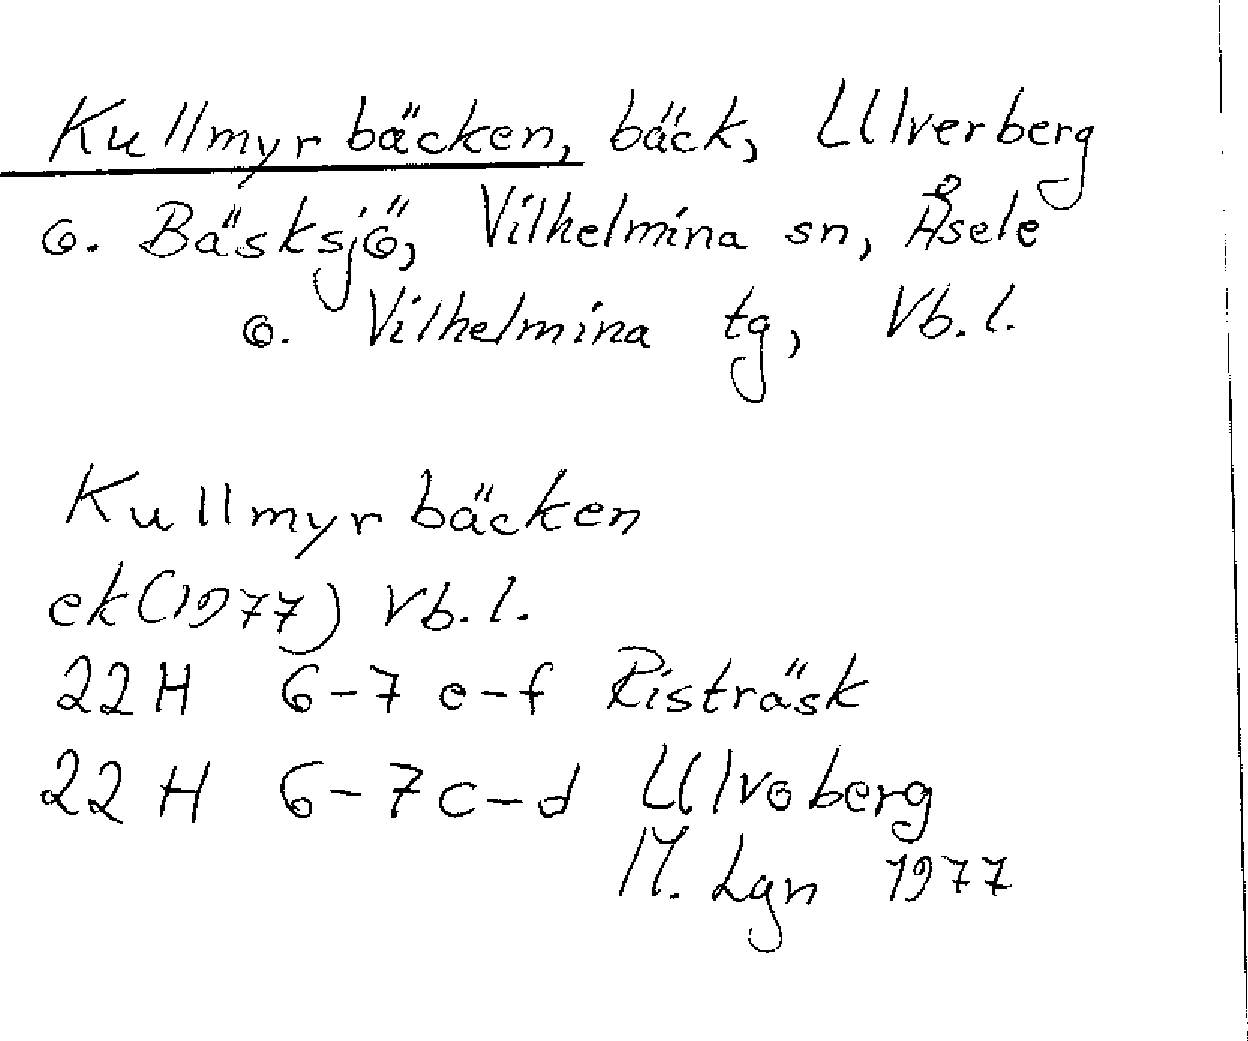 Kullmyrbäcken, bäck, Ulverberg
o. Bäsksjö, Vilhelmina sn, Åsele
o. Vilhelmina tg, Vb.l.
Kullmyrbäcken
ek(1977) Vb.l.
22H 6-7 e-f Risträsk
22H 6-7 c-d Ulvoberg
M. Lgn 1977